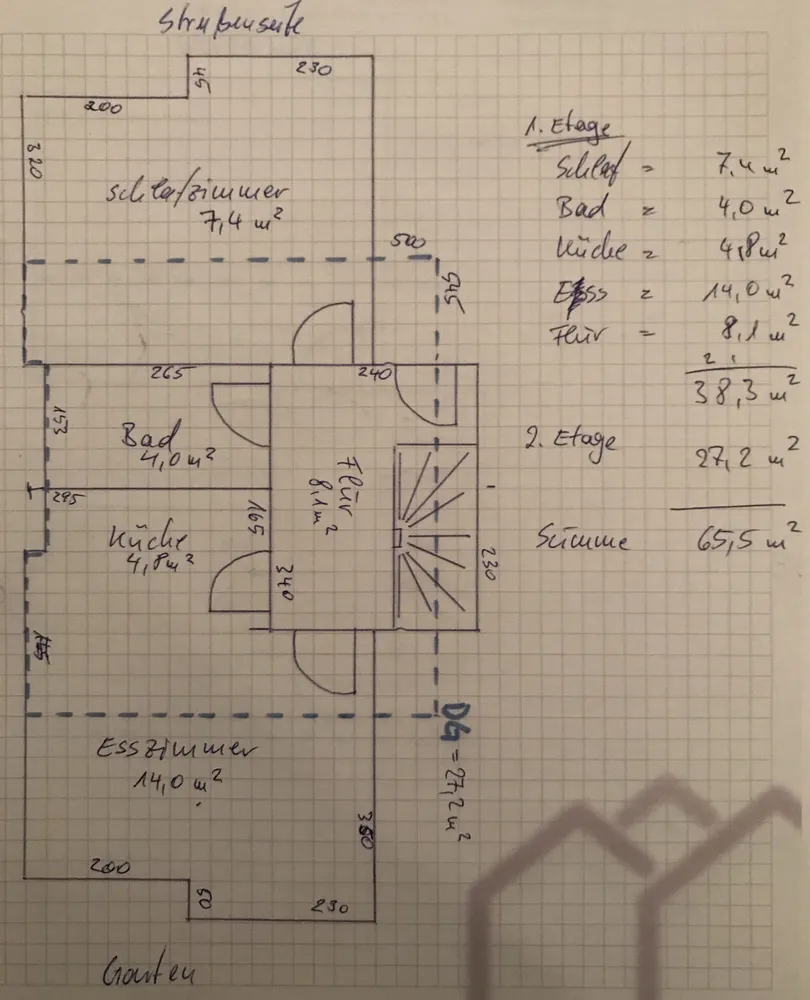 Straßenseite
230
45
200
320
Schlafzimmer
7,4 m²
500
545
265
240
153
Bad
4,0 m²
Flur
8,1 m²
295
165
Küche
4,8 m²
340
230
DG = 27,2 m²
Esszimmer
14,0 m²
200
50
230
Garten
1. Etage
Schlaf = 7,4 m²
Bad = 4,0 m²
Küche = 4,8 m²
Ess = 14,0 m²
Flur = 8,1 m²
2 1
38,3 m²
2. Etage 27,2 m²
Summe 65,5 m²